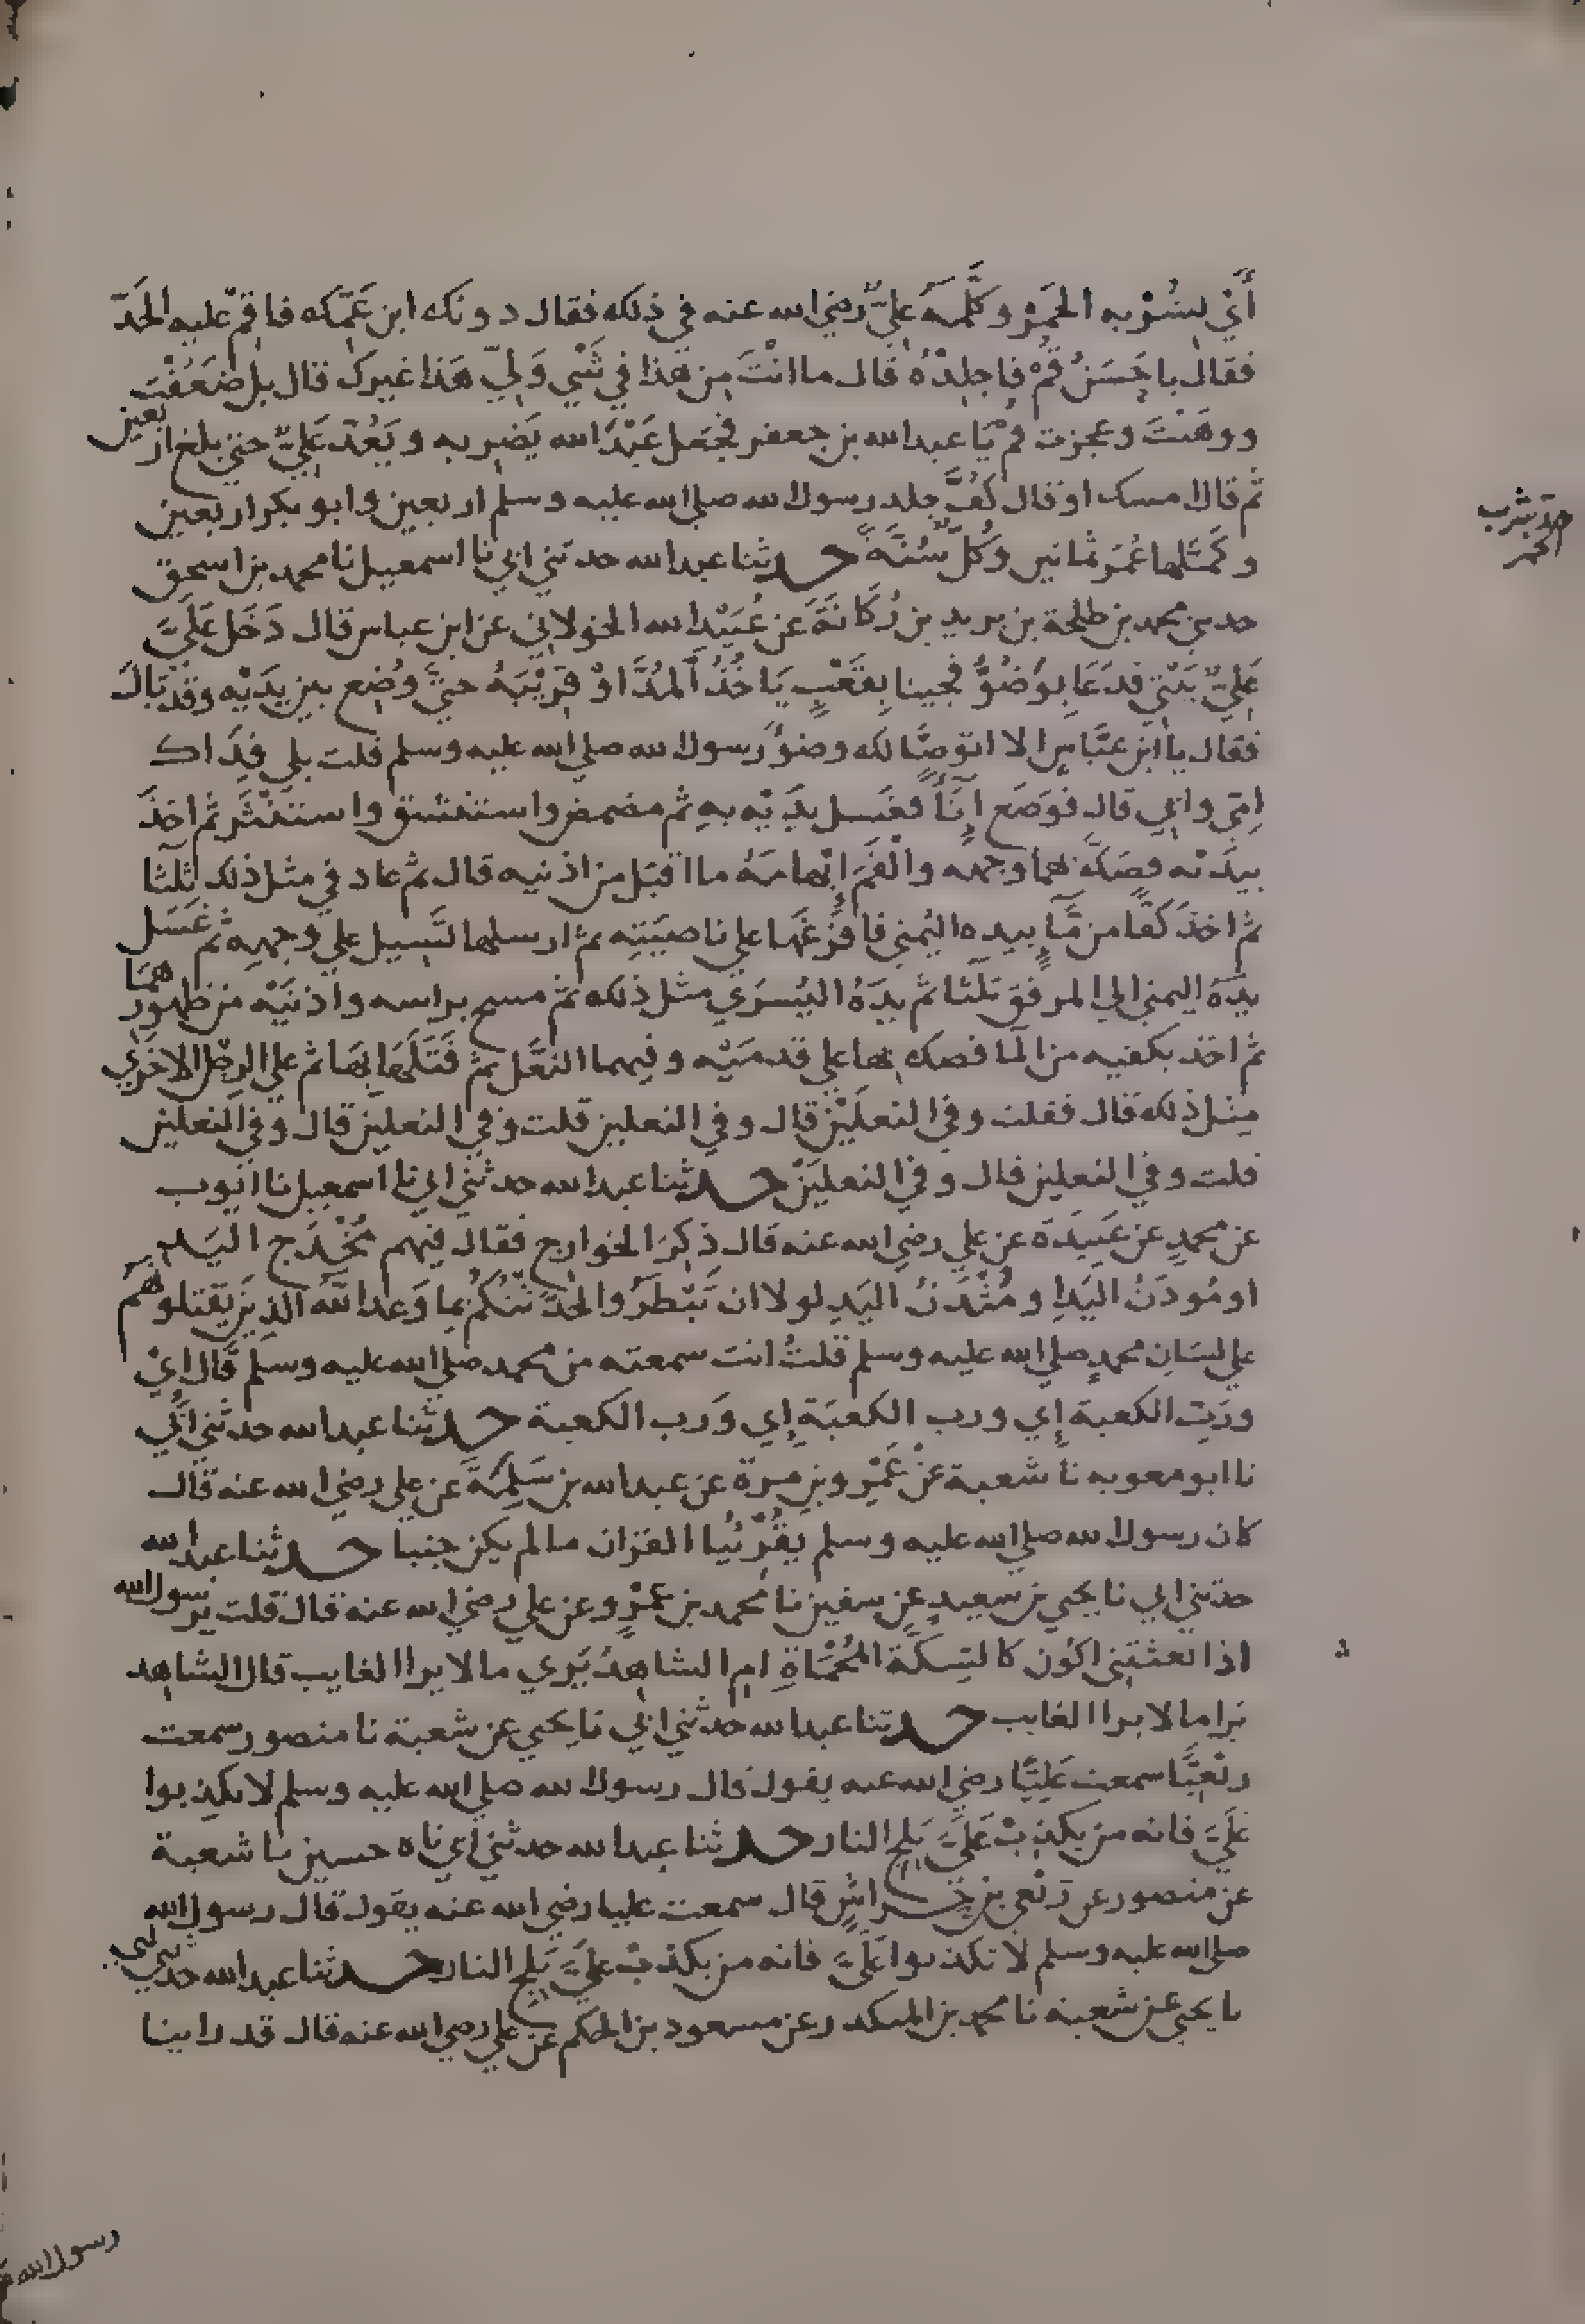 أَيْ بشُرْبه الخمْر وكلَّمَهُ عليٌّ رضي الله عنه في ذلك فقال دونك ابن عَمّك فاقِمْ عليه الحَدّ
فقال يا حَسَنُ قُمْ فاجلِدْهُ قال ما انْتَ مِن هَذا في شَيْ وَلِيّ هَذا غيرك قال بل ضَعُفْتَ
ووهَنْتَ وعجزت قُمْ يَا عبد الله بن جعفر فجَعل عَبْدُ الله يَضربه ويَعُدّ عَلِيٌّ حتي بلغ اربعين
ثم قال امسك او قال كُفَّ جلد رسول الله صلي الله عليه وسلم اربعين وابو بكر اربعين
وكمَّلها عُمَر ثمانين وكُلٌّ سُنَّةٌ حدثنا عبد الله حدثني ابي نا اسمعيل نا محمد بن اسحق
حدثني محمد بن طلحة بن يزيد بن رُكَانَةَ عن عُبَيْدِ الله الخولاني عن ابن عباس قال دَخَل عَلَيَّ
عَلِيٌّ بَيْتي فدَعَا بوَضُوْءٍ فجينا بِقَعْبٍ يَاخُذُ المُدَّ اوْ قَرِيْبَهُ حتيَّ وُضِع بين يدَيْه وقد بَالَ
فقال يا ابن عبَّاسٍ الا اتوضّأ لك وضوءَ رسول الله صلي الله عليه وسلم قلت بلي فِدَاك
امّي وابي قال فوَضَع إنَآءً فغَسل يدَيْه به ثم مضمض واستنشق واستنْثَر ثم اخَذَ
بيدَيْه فصَكَّ بهما وجهه والْقَمَ إبْهامَهُ ما اقبَل من اذنيه قال ثم عاد في مثل ذلك ثلثا
ثم اخذ كفًا من مَّآءٍ بيدِه اليُمني فافرَغَها علي ناصيَتِه ثم ارسلها تَسِيل علي وجهِه ثم غَسَل
يدَهُ اليمني الي المرفق ثلثا ثم يدَهُ اليُسرَي مثل ذلك ثم مسح براسه واذنَيْه من ظهورهمَا
ثم اخذ بكفيه من المآ فصك بهما علي قدمَيْه وفيهما النعْل ثم قَتَلَهَا بِهَا ثم علي الرجل الاخرَي
مِثل ذلك قال فقلت وفي النعلَيْن قال وفي النعلين قلت وفي النعلين قال وفي النعلين
قلت وفي النعلين قال وفي النعليَنْ حدثنا عبد الله حدثني ابي نا اسمعيل نا ايّوب
عن محمدٍ عن عَبِيدَة عن علي رضي الله عنه قال ذِكرَ الخوارج فقال فيهم مُخْدَج اليَدِ
او مُودَنُ اليَدِ او مُثْدَنُ اليَدِ لولا ان تَبْطَرُوا لحَدَّثتُكُم بما وَعد اللهُ الذين يقتلونهُم
علي لسَان محمدٍ صلي الله عليه وسلم قلتُ انت سمعته من محمد صلي الله عليه وسلم قَال ايْ
وربّ الكعبة إي ورب الكعبَة إي وَرب الكعبة حدثنا عبد الله حدثني ابي
نا ابو معويه نا شعبة عَنْ عَمْرِو بن مرة عن عبد الله بن سَلِمَةَ عن علي رضي الله عنه قال
كان رسول الله صلي الله عليه وسلم يُقْرئُنا القران ما لم يكن جنبا حدثنا عبد الله
حدثني ابي نا يحيي بن سعيدٍ عن سفين نا محمد بن عُمَرٍ وعن علي رضي الله عنه قال قلت يرسول الله
اذا بعثتني اكون كالسِكَّة المُحْمَاةِ ام الشاهدُ يَري ما لا يرا الغايب قال الشاهد
يَرا ما لا يرا الغايب حدثنا عبد الله حدثني ابي نا يحيي عن شعبة نا منصور سمعت
ربْعِيًّا سمعت عَلِيًّا رضي الله عنه يقول قال رسول الله صلي الله عليه وسلم لا تكذِبوا
عَلَيَّ فانه من يكذِبْ عَلَيَّ يَلِج النار حدثنا عبد الله حدثني ابي ناه حسين نا شعبة
عن منصور عن رِبْعي بن حِراشٍ قال سمعت عليا رضي الله عنه يقول قال رسول الله
صلي الله عليه وسلم لا تكذبوا عَلَيَّ فانه من يكذبْ عليَّ يَلِج النار حدثنا عبد الله حدثني ابي
نا يحيي عن شعبة نا محمد بن المنكدر عن مسعود بن الحكم عن علي رضي الله عنه قال قد راينا
حدّ شرب
الخمر
رسول الله